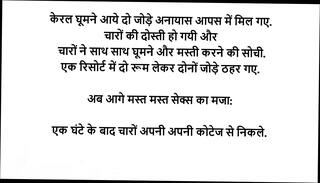 केरल घूमने आये दो जोड़े अनायास आपस में मिल गए.
चारों की दोस्ती हो गयी और
चारों ने साथ साथ घूमने और मस्ती करने की सोची.
एक रिसोर्ट में दो रूम लेकर दोनों जोड़े ठहर गए.
अब आगे मस्त मस्त सेक्स का मजा:
एक घंटे के बाद चारों अपनी अपनी कोटेज से निकले.